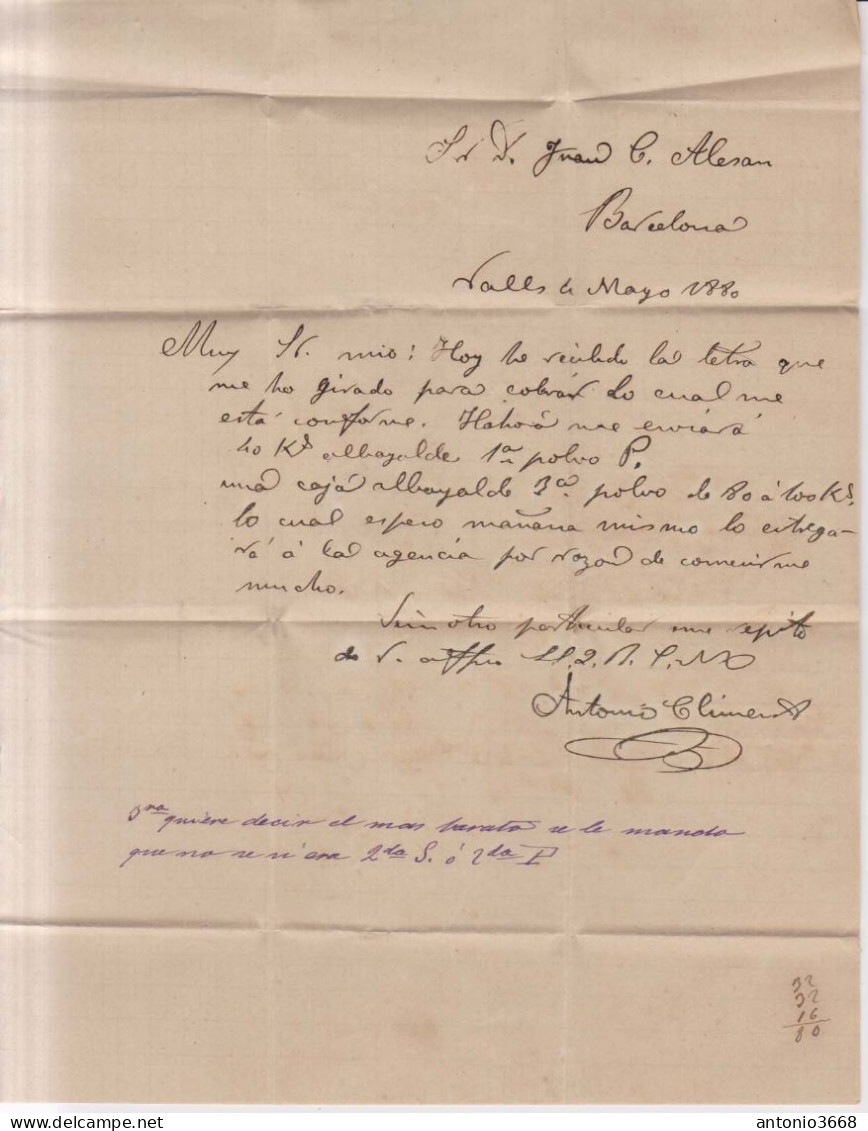 Sr D. Juan C. Alesan
Barcelona
Valls 4 Mayo 1880
Muy Sr. mio: Hoy he recibido la letra que
me ho girado para cobrar lo cual me
está conforme. Hahora me enviará
40 Ks albayalde 1a polvo P.
una cajá albayalde 3a. polvo de 80 á 100 Ks.
lo cual espero mañana mismo lo entrega-
rá á la agencia por razon de convenirme
mucho.
Sin otro particular me repito
de V. affmo S.S.Q.B.S.M
Antonio Climent
3ra quiere decir el mas barato se le mando
que no se si era 2da S. ó 2da F
32
32
16
80
antonio3668